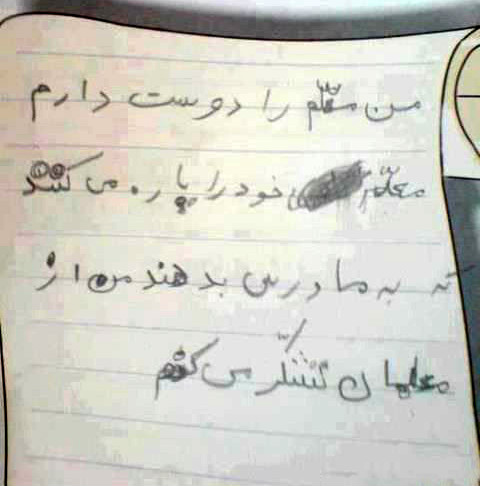 من معلّم را دوست دارم
معلّم خود را پاره می کنند
که به ما درس بدهند من از
معلمان تشکّر می کنم